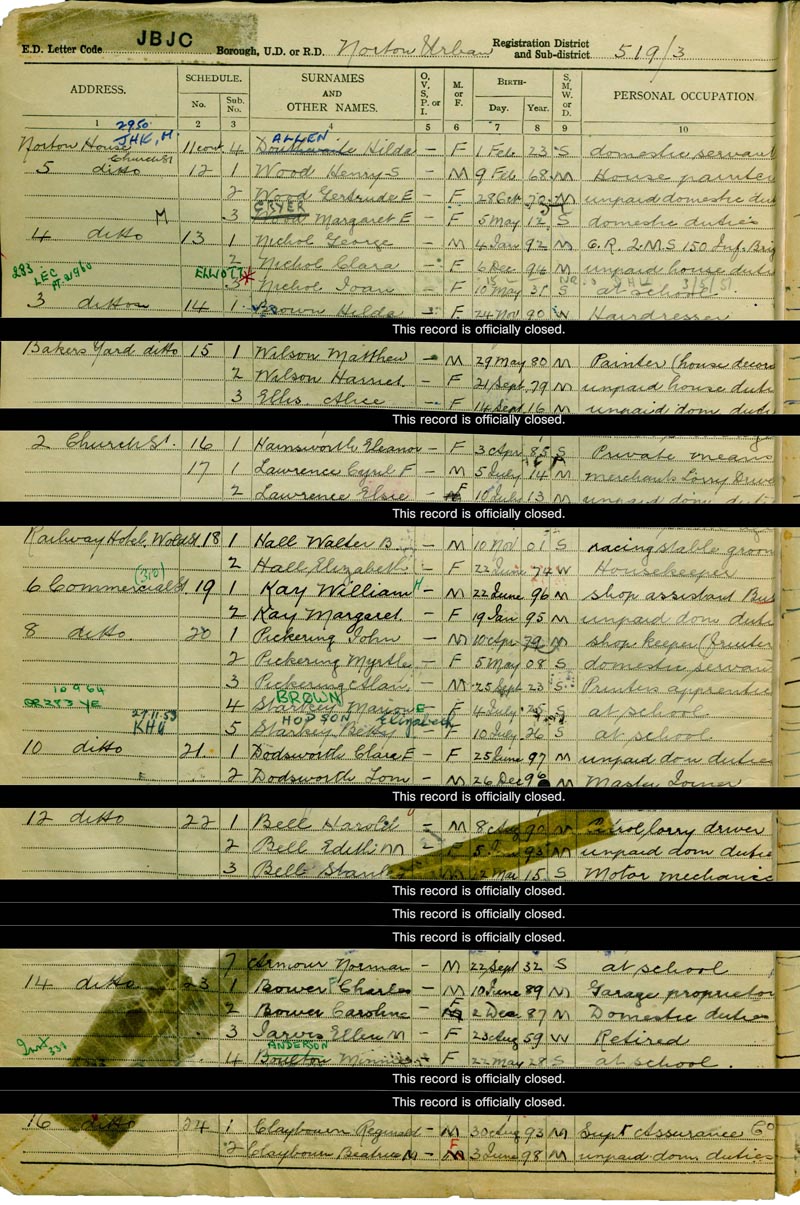 JBJC
E.D. Letter Code Borough, U.D. or R.D. Norton Urban Registration District and Sub-district 519/3
ADDRESS. SCHEDULE. No. Sub. No. SURNAMES AND OTHER NAMES. O, V, S, P, or I. M. or F. BIRTH- Day. Year. S, M, W, or D. PERSONAL OCCUPATION.
1 2 3 4 5 6 7 8 9 10
2950 ALLEN
Norton House 11 cont. 4 Hilda – F 1 Feb 23 S domestic servant
Church St
5 ditto 12 1 Wood Henry S – M 9 Feb 68 M House painter
2 Wood Gertrude E – F 28 Oct 72 M unpaid domestic dut
CRYER
M 3 Wood Margaret E – F 5 May 12 S domestic duties
4 ditto 13 1 Nichol George – M 4 Jan 92 M
2 Nichol Clara – F 6 Dec 94 M unpaid house duti
283 LEC ELLIOTT 3 Nichol Joan – F 10 May 31 S at school
3 ditto 14 1 Brown Hilda F 24 Nov 90 W Hairdresser
This record is officially closed.
Bakers Yard ditto 15 1 Wilson Matthew – M 29 May 80 M Painter (house decora
2 Wilson Harriet – F 21 Sept 79 M unpaid house duti
3 Ellis Alice – F 14 Sept 16 M unpaid dom duti
This record is officially closed.
2 Church St. 16 1 Hainsworth Eleanor – F 3 Apr 85 S Private means
17 1 Lawrence Cyril F – M 5 July 14 M merchants Lorry Drive
2 Lawrence Elsie – F 10 July 13 M unpaid dom duti
This record is officially closed.
Railway Hotel, Wold St 18 1 Hall Walter B. – M 10 Nov 01 S racing stable groom
2 Hall Elizabeth – F 22 June 74 W Housekeeper
(310)
6 Commercial St. 19 1 Kay William H – M 22 June 96 M shop assistant
2 Kay Margaret – F 19 Jan 95 M unpaid dom duti
8 ditto 20 1 Pickering John – M 10 Apr 79 M shop keeper (fruiter
2 Pickering Myrtle – F 5 May 08 S domestic servan
3 Pickering Alan – M 25 Sept 23 S Printers apprentice
10964 BROWN
4 Starkey Marion E – F 4 July 25 S at school
29.11.53 HOPSON Elizabeth
KHU 5 Starkey Betty – F 10 July 26 S at school
10 ditto 21 1 Dodsworth Clara E – F 25 June 97 M unpaid dom duties
2 Dodsworth Tom – M 26 Dec 96 M Master Joiner
This record is officially closed.
12 ditto 22 1 Bell Harold – M 8 Aug 92 M Petrol lorry driver
2 Bell Edith M – F 5 Jan 93 M unpaid dom dutie
3 Bell – M 2 Mar 15 S Motor mechanic
This record is officially closed.
This record is officially closed.
This record is officially closed.
7 Armour Norman – M 22 Sept 32 S at school
14 ditto 23 1 Bower Charles – M 10 June 89 M Garage proprietor
2 Bower Caroline – F 2 Dec 87 M Domestic duties
3 Jarvis Ellen M – F 23 Aug 59 W Retired
ANDERSON
4 Boulton – F 22 May 28 S at school.
This record is officially closed.
This record is officially closed.
16 ditto 24 1 Claybourn Reginald – M 30 Aug 93 M Supt Assurance Co
2 Claybourn Beatrice M – F 3 June 98 M unpaid dom duties